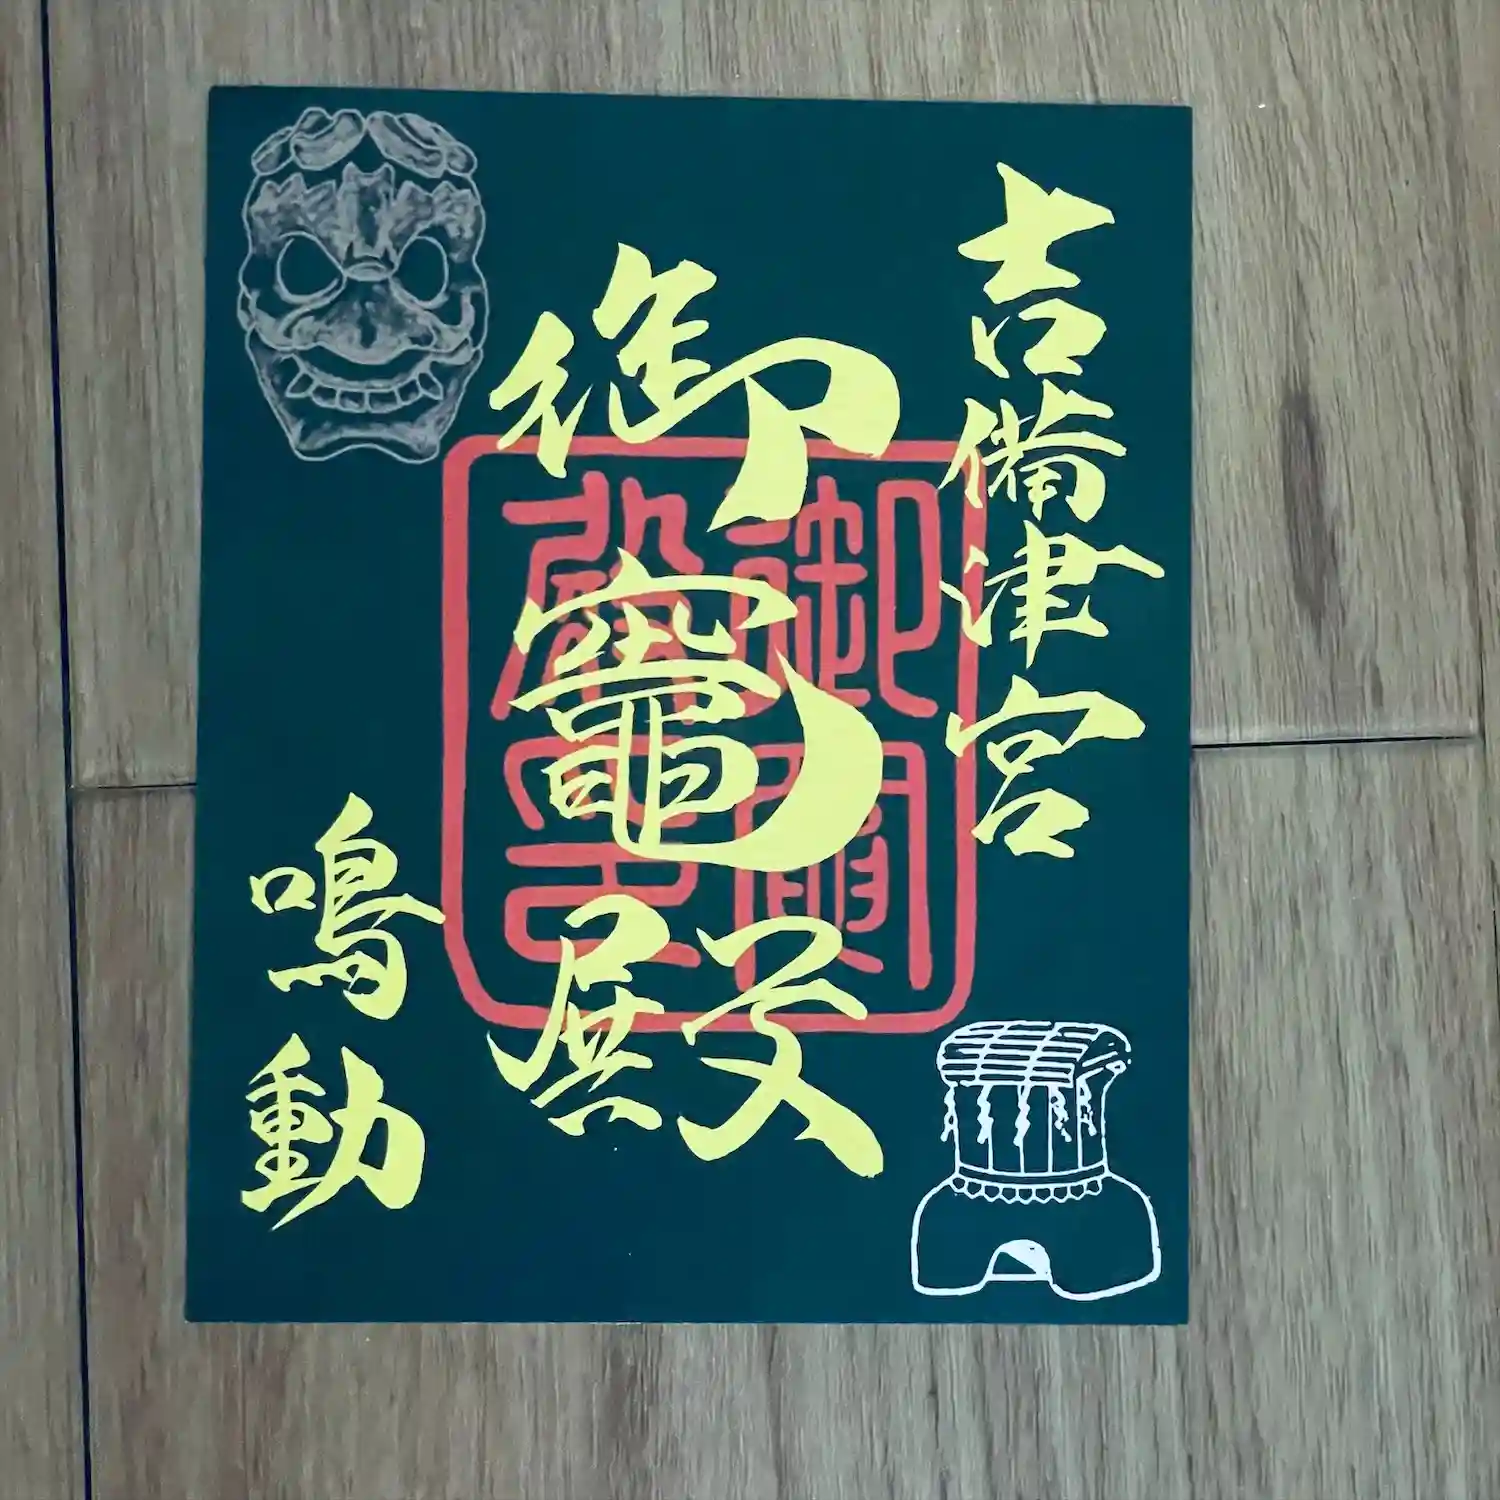 吉備津宮
御竈殿
鳴動
御竈殿璽